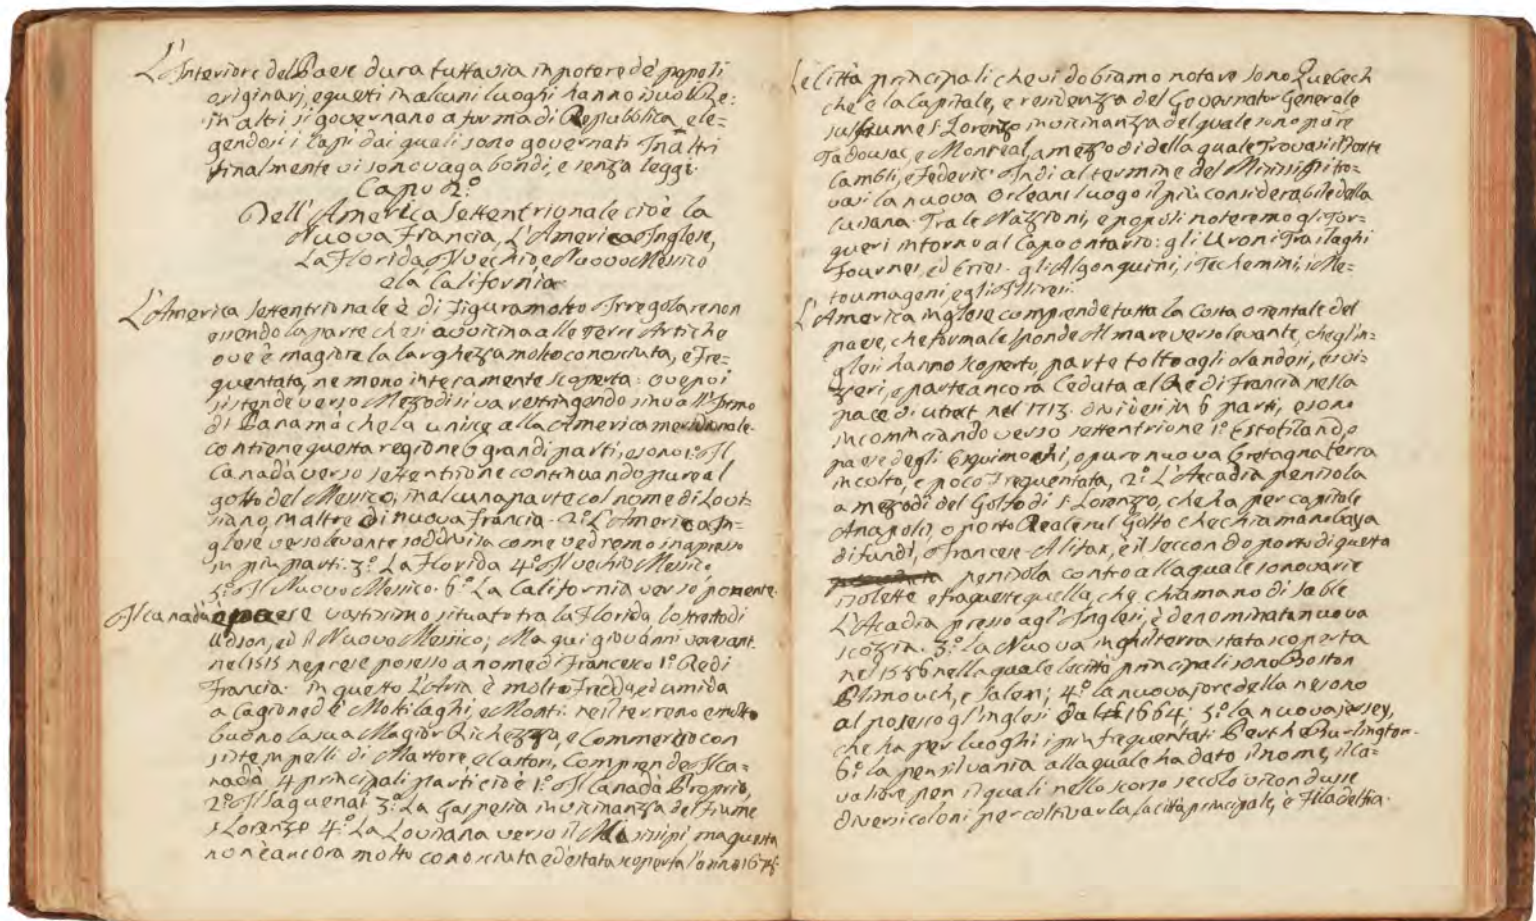 L'Interiore del Paese dura tuttavia in potere de' popoli
originarj, e questi in alcuni luoghi hanno i suoi Re:
in altri si governano a forma di Repubblica ele=
gendosi i Capi dai quali sono governati. In altri
finalmente vi sono vagabondi, e senza leggi.
Capo 2.º
Dell'America Settentrionale cioè la
Nuova Francia, L'America Inglese,
La Florida Il vechio e Nuovo Messico
e la California.
L'America Settentrionale è di Figura molto Irregolare non
essendo la parte che si avvicina alle Terre Artiche
ove è magiore la larghezza molto conosciuta, e Fre=
quentata, ne meno interamente scoperta: ove poi
si stende verso Mezodi si va restringendo sino all'Istmo
di Panamá che la unisce alla America meridionale.
contiene questa regione 6 grandi parti, e sono 1.º Il
Canadà verso settentrione continuando pure al
golfo del Messico, in alcuna parte col nome di Loui=
siana, in altre di nuova Francia. 2.º L'America In=
glese verso levante sodivisa come vedremo in apresso
in più parti. 3.º La Florida 4.º Il vechio Messico
5.º Il Nuovo Messico. 6.º La California verso ponente.
Il canadà è paese vastissimo situato tra la Florida, lo stretto di
Udson, ed il Nuovo Messico; Ma qui giovanni verasant.
nel 1515 ne prese posesso a nome di Francesco 1.º Re di
Francia. in questo L'Aria è molto Fredda, ed umida
a Cagione de' Molti laghi, e Monti. ne il terreno è molto
buono la sua Magior Richezza, e Commercio con
siste in pelli di Martore e Castori, Comprende Il Ca=
nadà 4 principali parti cioè 1.º Il Canadà Proprio,
2.º Il Saguenai 3.º La Gaspesia in vicinanza del Fiume
s Lorenzo 4.º La Louisiana verso il Missisipi, ma questa
non è ancora molto conosciuta ed è stata scoperta l'anno
Le Città principali che vi dobiamo notare sono Quebech
che è la Capitale, e residenza del Governator Generale
sul fiume S. Lorenzo in vicinanza del quale sono pure
Tadousac, e Monreal, a mezo di della quale Trovasi il Forte
Cambli, e Federic. Indi al termine del Missisipi tro=
vasi la nuova Orleans luogo il più considerabile della
Lusiana. Tra le Nazzioni, e popoli noteremo gl'Ior=
queri intorno al Capo ontario: gli Uroni Tra i laghi
Fournes, ed Eries. gli Algonquini, i Techemini, i Ne=
toumageni, e gl'Illinesi.
L'America inglese comprende tutta la Costa orientale del
paese, che forma le sponde Il mare verso levante, che gl'in=
glesi hanno scoperto, parte tolto agli olandesi, e svi=
zzeri, e parte ancora Ceduta al Re di Francia nella
pace di utrect nel 1713. dividesi in 6 parti, e sono
incominciando verso settentrione 1.º Estotiland, o
paese degli Esquimochi, o pure nuova bretagna terra
incolta, e poco Frequentata, 2.º L'Accadia penisola
a mezodi del Golfo di s. Lorenzo, che ha per capitale
Anapolis, o porto Reale sul Golfo che chiamano baya
di fundi, o francese. Alifax, è il seccondo porto di questa
penisola contro alla quale sono varie
isolette e fra queste quella, che chiamano di Sable
L'Acadia presso agl'Inglesi, è denominata nuova
scozzia. 3.º la Nuova inghilterra stata scoperta
nel 1586 nella quale le città principali sono Boston
Plimouch, e Salem; 4.º la nuova jore della ne sono
al posesco gl'inglesi dal 1664; 5.º la nuova jersey,
che ha per luoghi i più frequentati Perth e Burlington.
6.º la pensilvania alla quale ha dato il nome, il ca=
valiere pen il quali nello scorso secolo vi condusse
diversi coloni per coltivarla, la città principale, è Filadelfia.